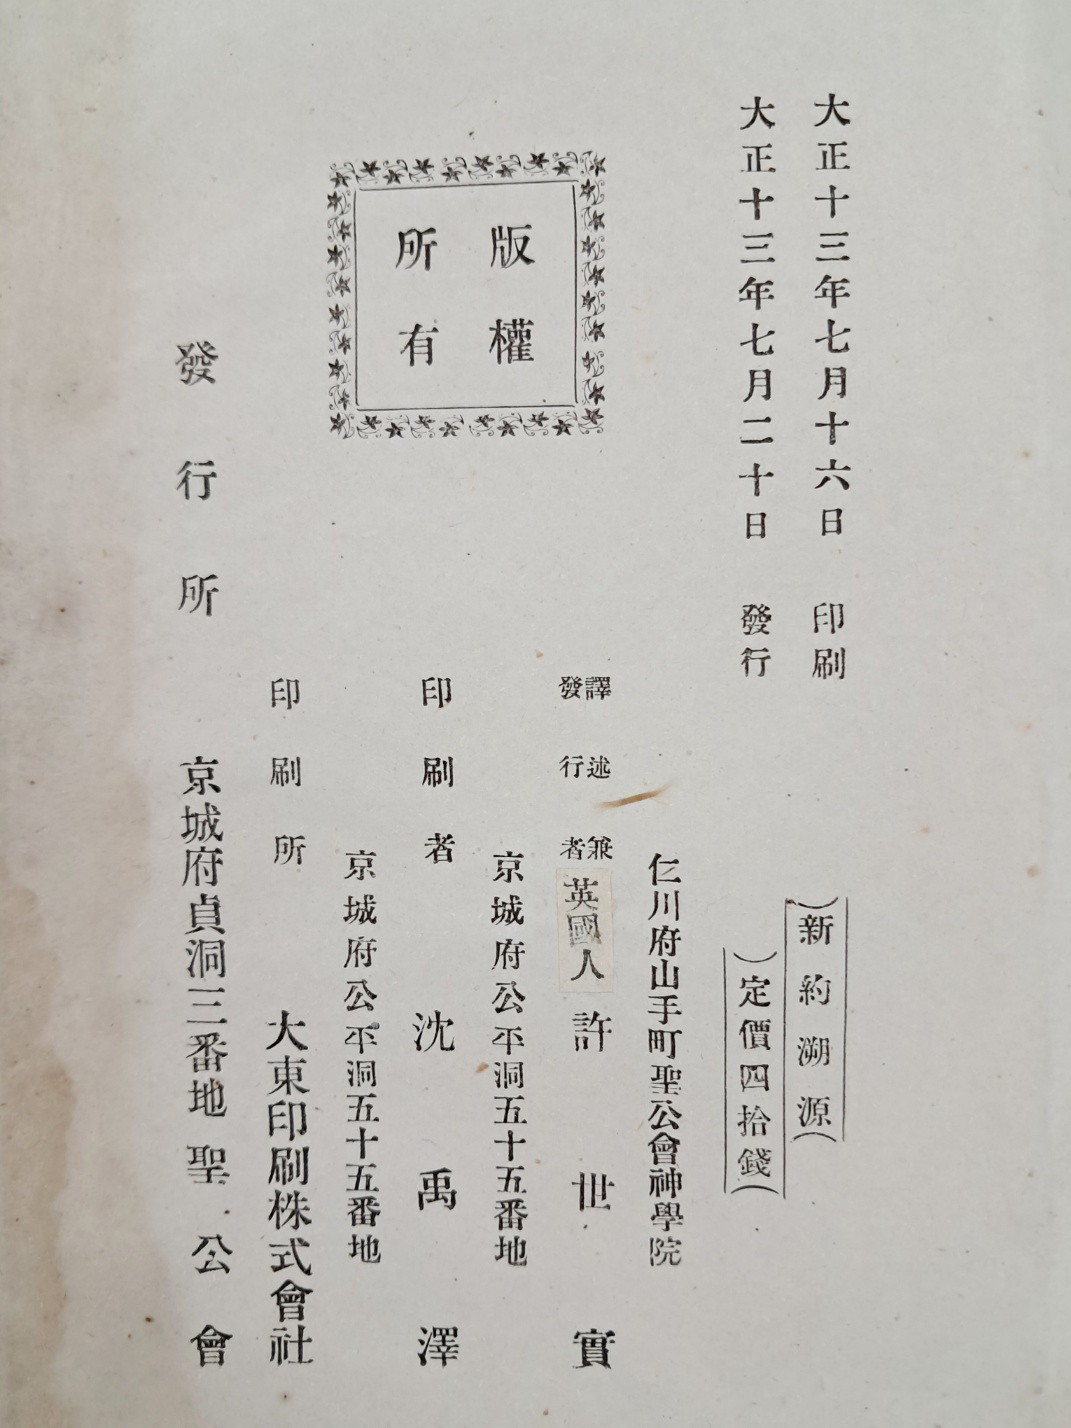 大正十三年七月十六日 印刷
大正十三年七月二十日 發行
新約溯源
定價四拾錢
版權
所有
仁川府山手町聖公會神學院
譯述兼
發行者
英國人 許世實
京城府公平洞五十五番地
印刷者 沈禹澤
京城府公平洞五十五番地
印刷所 大東印刷株式會社
發行所 京城府貞洞三番地 聖公會